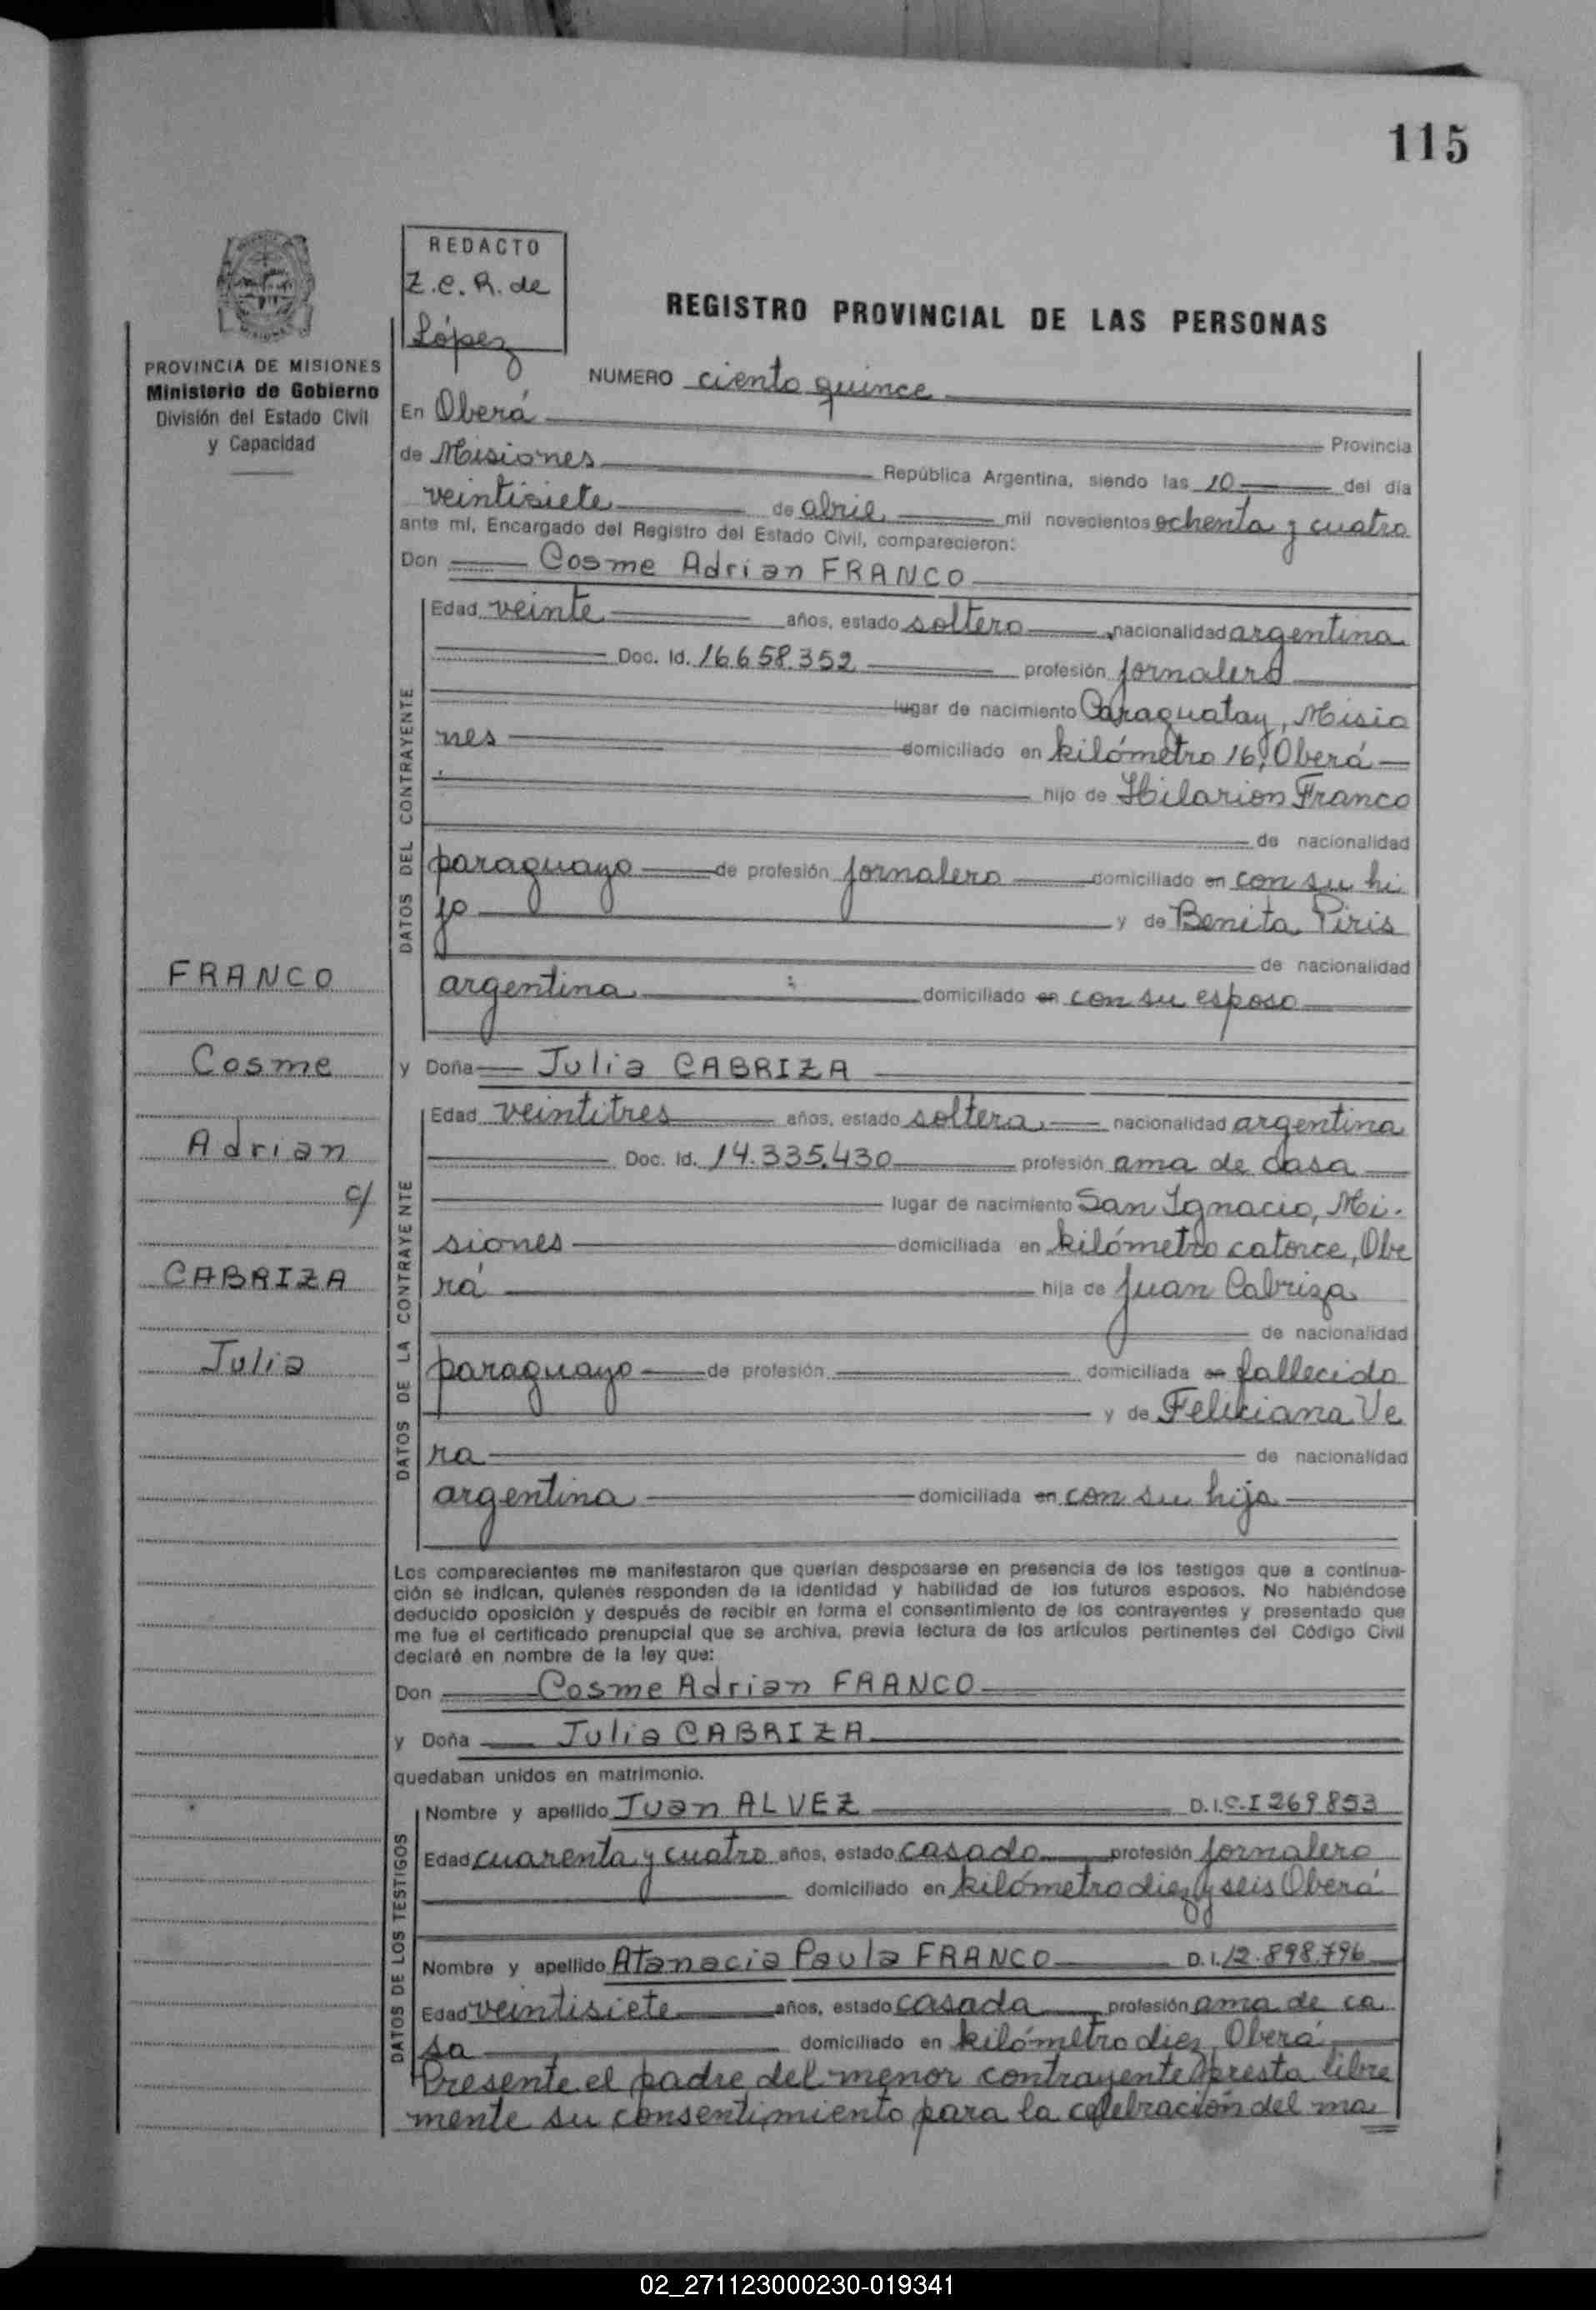 115
REDACTO
Z.C.R. de
López
REGISTRO PROVINCIAL DE LAS PERSONAS
PROVINCIA DE MISIONES
Ministerio de Gobierno
División del Estado Civil
y Capacidad
NUMERO ciento quince
En Oberá Provincia
de Misiones República Argentina, siendo las 10 del día
veintisiete de abril mil novecientos ochenta y cuatro
ante mí, Encargado del Registro del Estado Civil, comparecieron:
Don Cosme Adrian FRANCO
DATOS DEL CONTRAYENTE
Edad veinte años, estado soltero nacionalidad argentina
Doc. Id. 16.658.352 profesión jornalero
lugar de nacimiento Caraguatay, Misio
nes domiciliado en kilómetro 16, Oberá
hijo de Hilarion Franco
de nacionalidad
paraguayo de profesión jornalero domiciliado en con su hi
jo y de Benita Piris
de nacionalidad
argentina domiciliado en con su esposo
FRANCO
Cosme
Adrian
c/
CABRIZA
Julia
y Doña Julia CABRIZA
DATOS DE LA CONTRAYENTE
Edad veintitres años, estado soltera nacionalidad argentina
Doc. Id. 14.335.430 profesión ama de casa
lugar de nacimiento San Ignacio, Mi-
siones domiciliada en kilómetro catorce, Obe
rá hija de Juan Cabriza
de nacionalidad
paraguayo de profesión domiciliada en fallecido
y de Feliciana Ve
ra de nacionalidad
argentina domiciliada en con su hija
Los comparecientes me manifestaron que querían desposarse en presencia de los testigos que a continua-
ción se indican, quienes responden de la identidad y habilidad de los futuros esposos. No habiéndose
deducido oposición y después de recibir en forma el consentimiento de los contrayentes y presentado que
me fue el certificado prenupcial que se archiva, previa lectura de los artículos pertinentes del Código Civil
declaré en nombre de la ley que:
Don Cosme Adrian FRANCO
y Doña Julia CABRIZA
quedaban unidos en matrimonio.
DATOS DE LOS TESTIGOS
Nombre y apellido Juan ALVEZ D.I. C.I 269853
Edad cuarenta y cuatro años, estado casado profesión jornalero
domiciliado en kilómetro diez y seis Oberá
Nombre y apellido Atanacia Paula FRANCO D.I. 12.898.796
Edad veintisiete años, estado casada profesión ama de ca
sa domiciliado en kilómetro diez, Oberá
Presente el padre del menor contrayente presta libre
mente su consentimiento para la celebración del ma
02_271123000230-019341